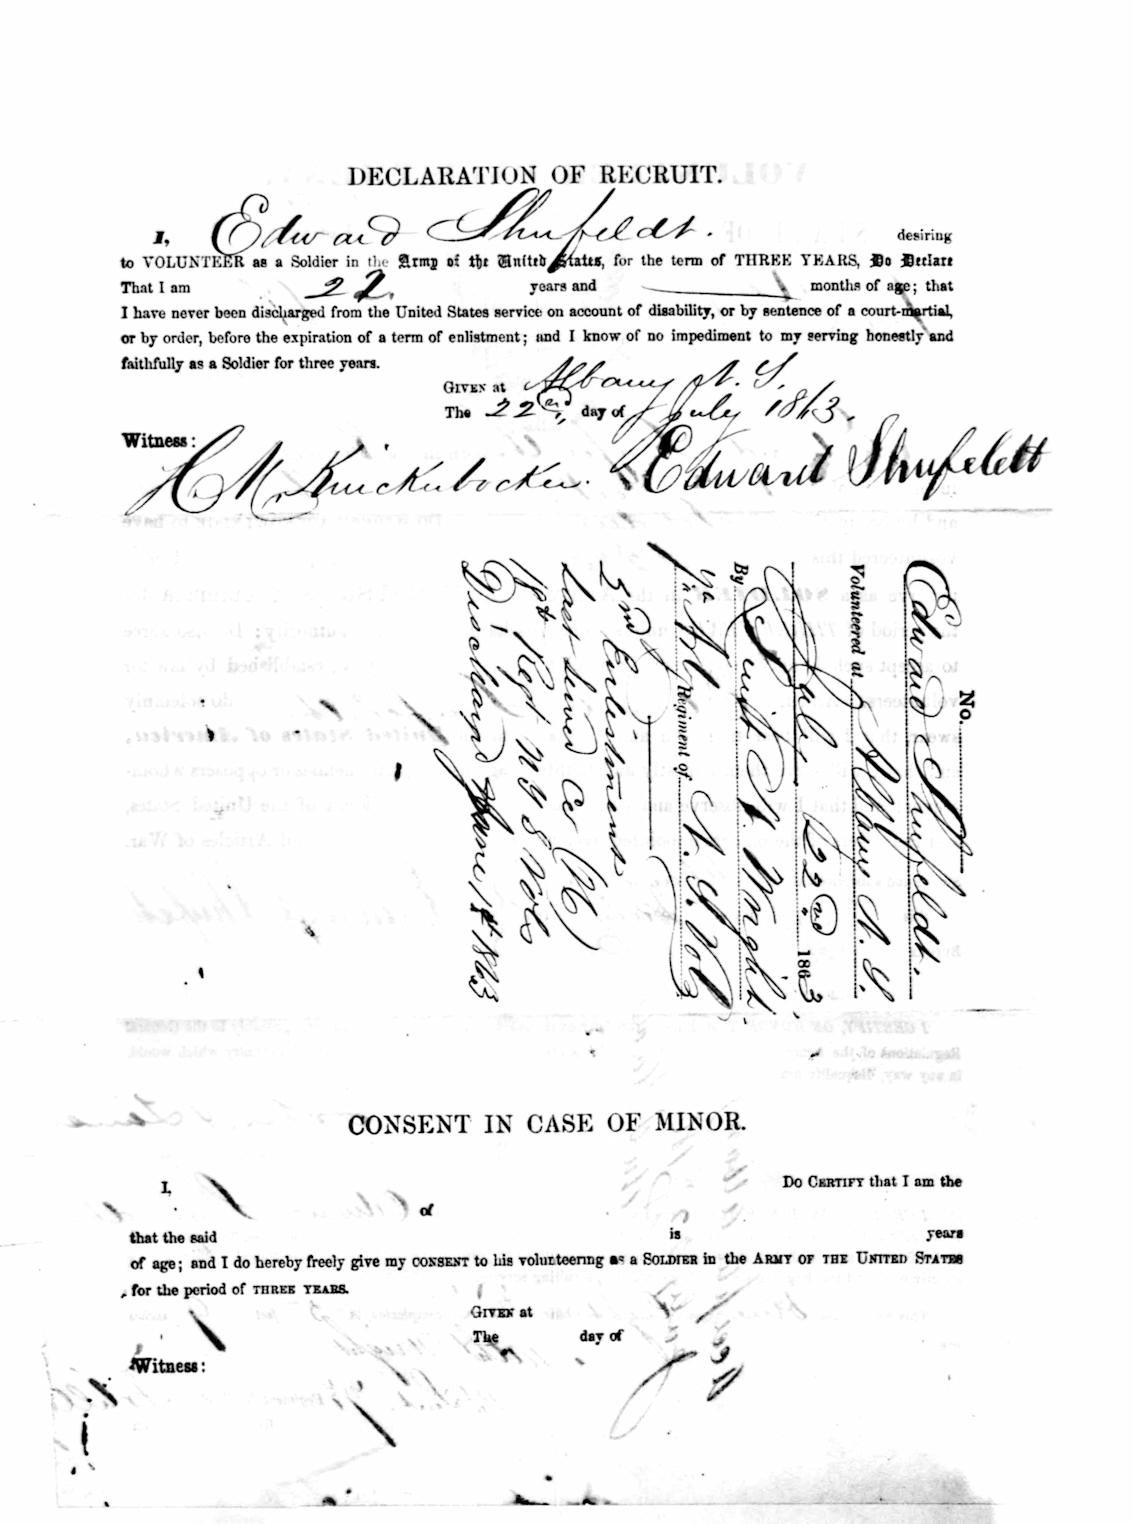 DECLARATION OF RECRUIT.
I, Edward Shufeldt. desiring
to VOLUNTEER as a Soldier in the Army of the United States, for the term of THREE YEARS, Do Declare
That I am 22 years and months of age; that
I have never been discharged from the United States service on account of disability, or by sentence of a court-martial,
or by order, before the expiration of a term of enlistment; and I know of no impediment to my serving honestly and
faithfully as a Soldier for three years.
GIVEN at Albany N. Y.
The 22nd day of July 1863.
Witness:
H. M. Knickerbocker. Edward Shufeldt
No.
Edward Shufeldt.
Volunteered at Albany N. Y.
July 22nd 1863,
By Lieut S. Wright
7th Regiment of N. Y. Vols
2nd Enlistment
Last served Co
1st Regt N Y S Vols
Discharged June 1863
CONSENT IN CASE OF MINOR.
I, DO CERTIFY that I am the
of
that the said is years
of age; and I do hereby freely give my CONSENT to his volunteering as a SOLDIER in the ARMY OF THE UNITED STATES
for the period of THREE YEARS.
GIVEN at
The day of
Witness: